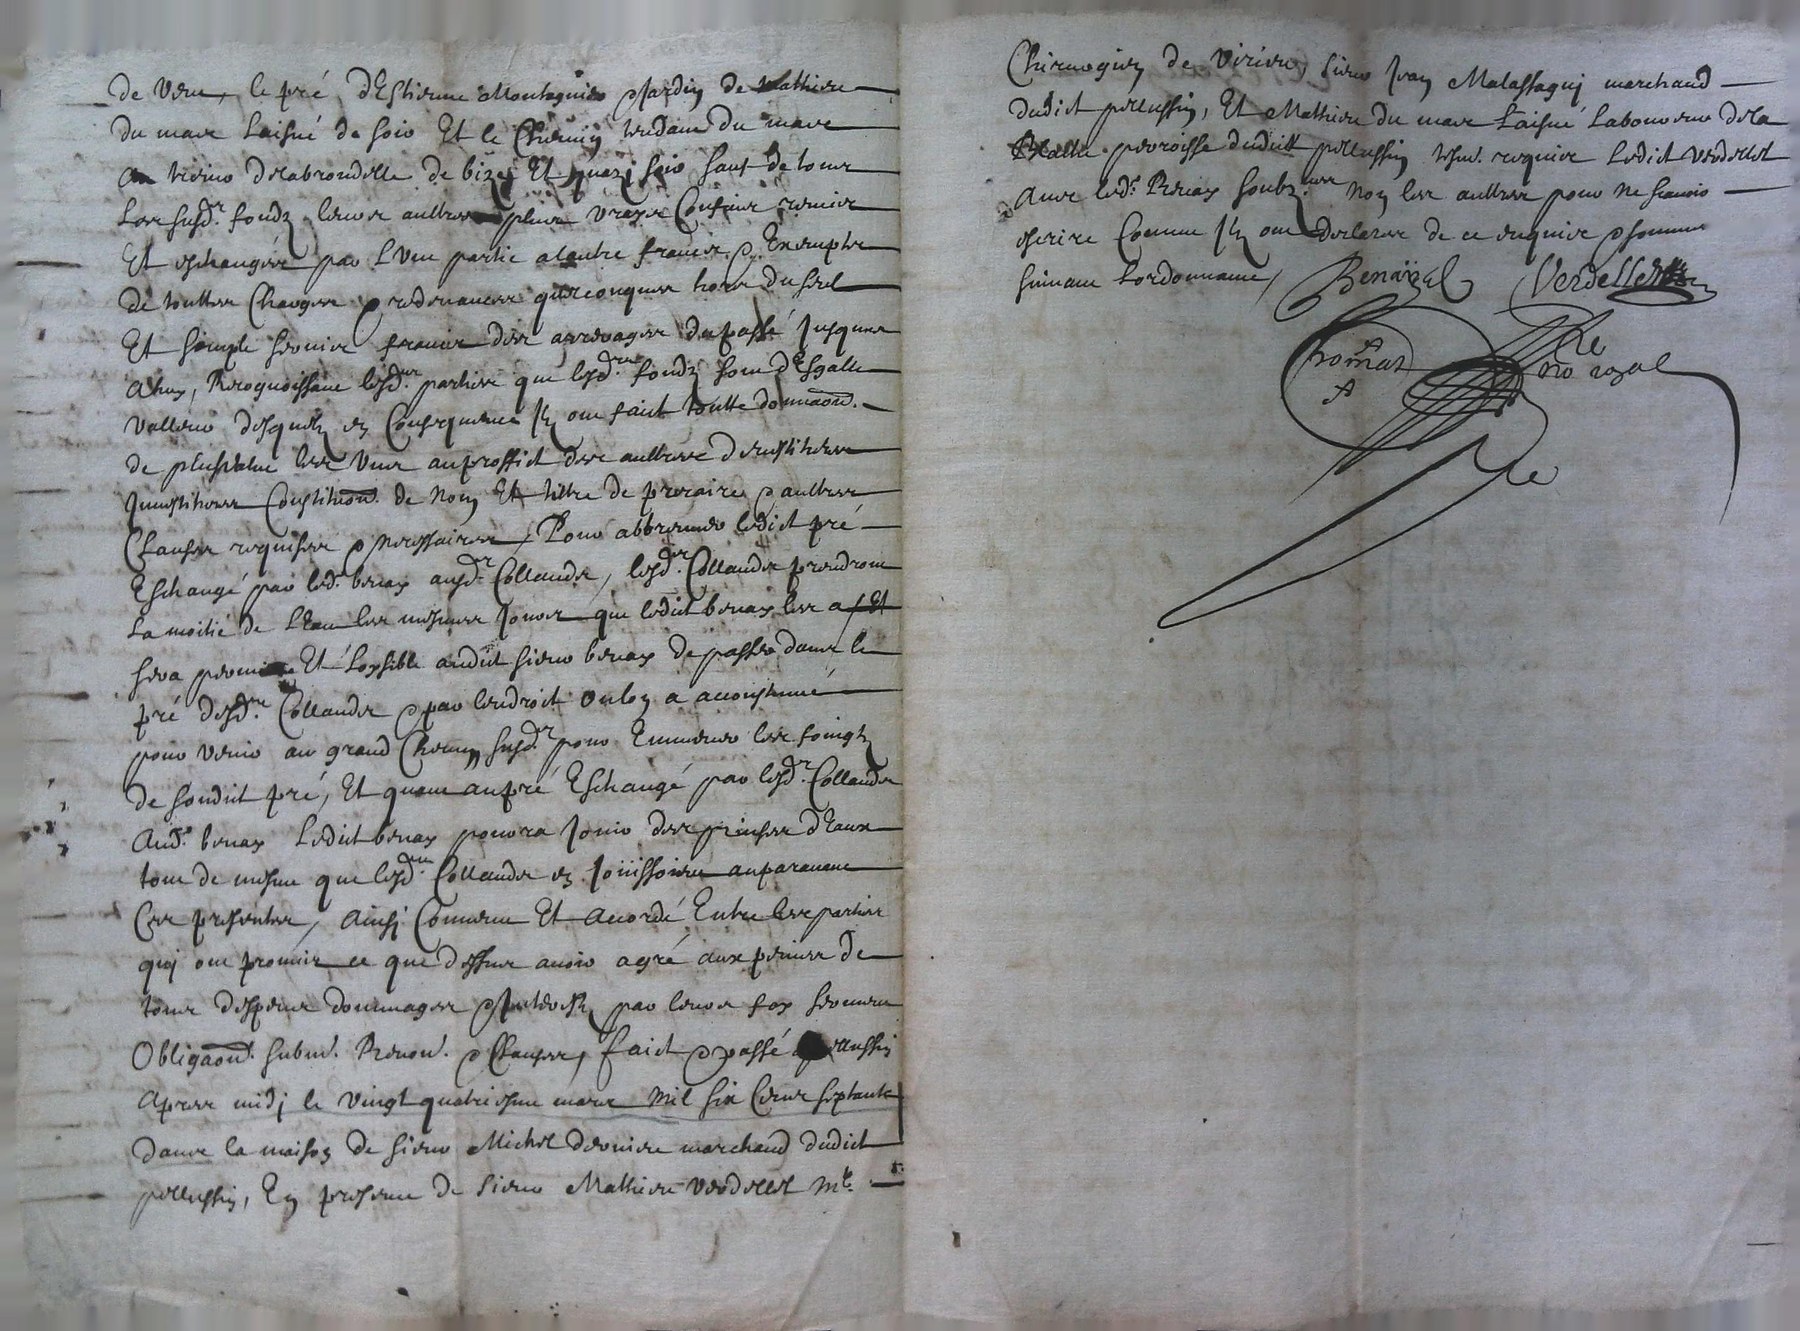 de vent, le pré d'Estienne Montagnier & jardin de Mathieu
du marc Laisné de soir Et le Chemin tendant du marc
au tieuo delabrondelle de bize Et quazi soir sauf de tous
Les susd. fondz leurs aultres plus vrays Confins remis
Et eschangés par l'une partie a lautre francz & Exemptz
de touttes Charges & redevances quelconques hors du seul
Et simple servis francz des arrerages du passé Jusques
a huy, Recognoissant lesd. parties que lesd. fondz sont d'Esgalle
valleur desquelz en Consequence Ilz ont faict toutte donnaon.
de plusvalue les uns au proffict des aultres devestitures
Jnvestitures Constituon. de Nom Et tiltre de precaire & aultres
Clauses requises & necessaires, Pour abbreuver ledict pré
Eschangé par led. benay ausd. Collandz, lesd. Collandz prendront
La moitié de l'Eau les mesmes Jours que ledict benay les a, Et
sera permis Et Loysible audict sieur benay de passer dans le
pré desd. Collandz & par lendroit ou lon a accoustumé
pour venir au grand Chemin susd. pour Emmener les foingz
de sondict pré, Et quant au pré Eschangé par lesd. Collandz
Aud. benay Ledict benay pourra Jouir des prinses d'Eaux
tout de mesme que lesd. Collandz en Jouissoient auparavant
Ces presentes, Ainsy Convenu Et Accordé Entre les parties
quj ont promis ce que dessus avoir agré aux peines de
tous despens dommages & Jnterestz par leurs foy serment
Obligaon. subm. Renon. & Clauses, faict & passé a pellussin
Apres midj le vingt quatriesme mars mil six Cens septante
dans la maison de sieur Michel dervieu marchand dudict
pellussin, En presence de sieur Mathieu verdellet me.
Chirurgien de virieu, sieur Jean Malassagnj marchand
dudict pellussin, Et Mathieu du marc Laisné Laboureur de la
Valla parroisse dudict pellussin tesm. requis Ledict verdellet
Avec led. Benay soubz.nes Non les aultres pour ne scavoir
escrire Comme Ilz ont declarer de ce enquis & sommes
suivant Lordonnance,
Benay
Verdellet
Chomat
Re
No royal